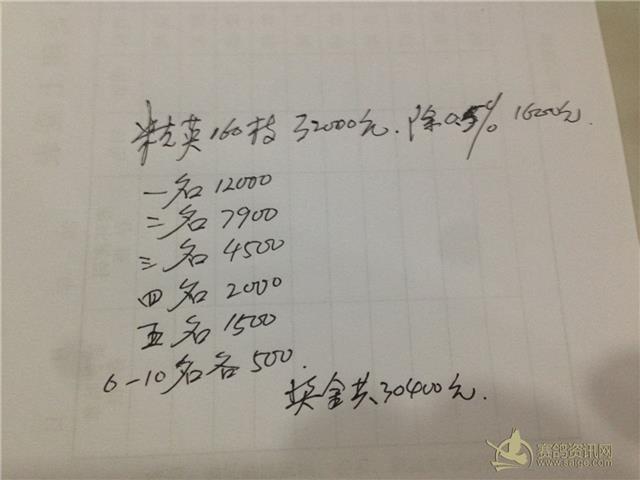 精英160枝 32000元.除0.5% 1600元.
一名 12000
二名 7900
三名 4500
四名 2000
五名 1500
6-10名各500.
奖金共30400元.
赛鸽资讯网
www.saige.com